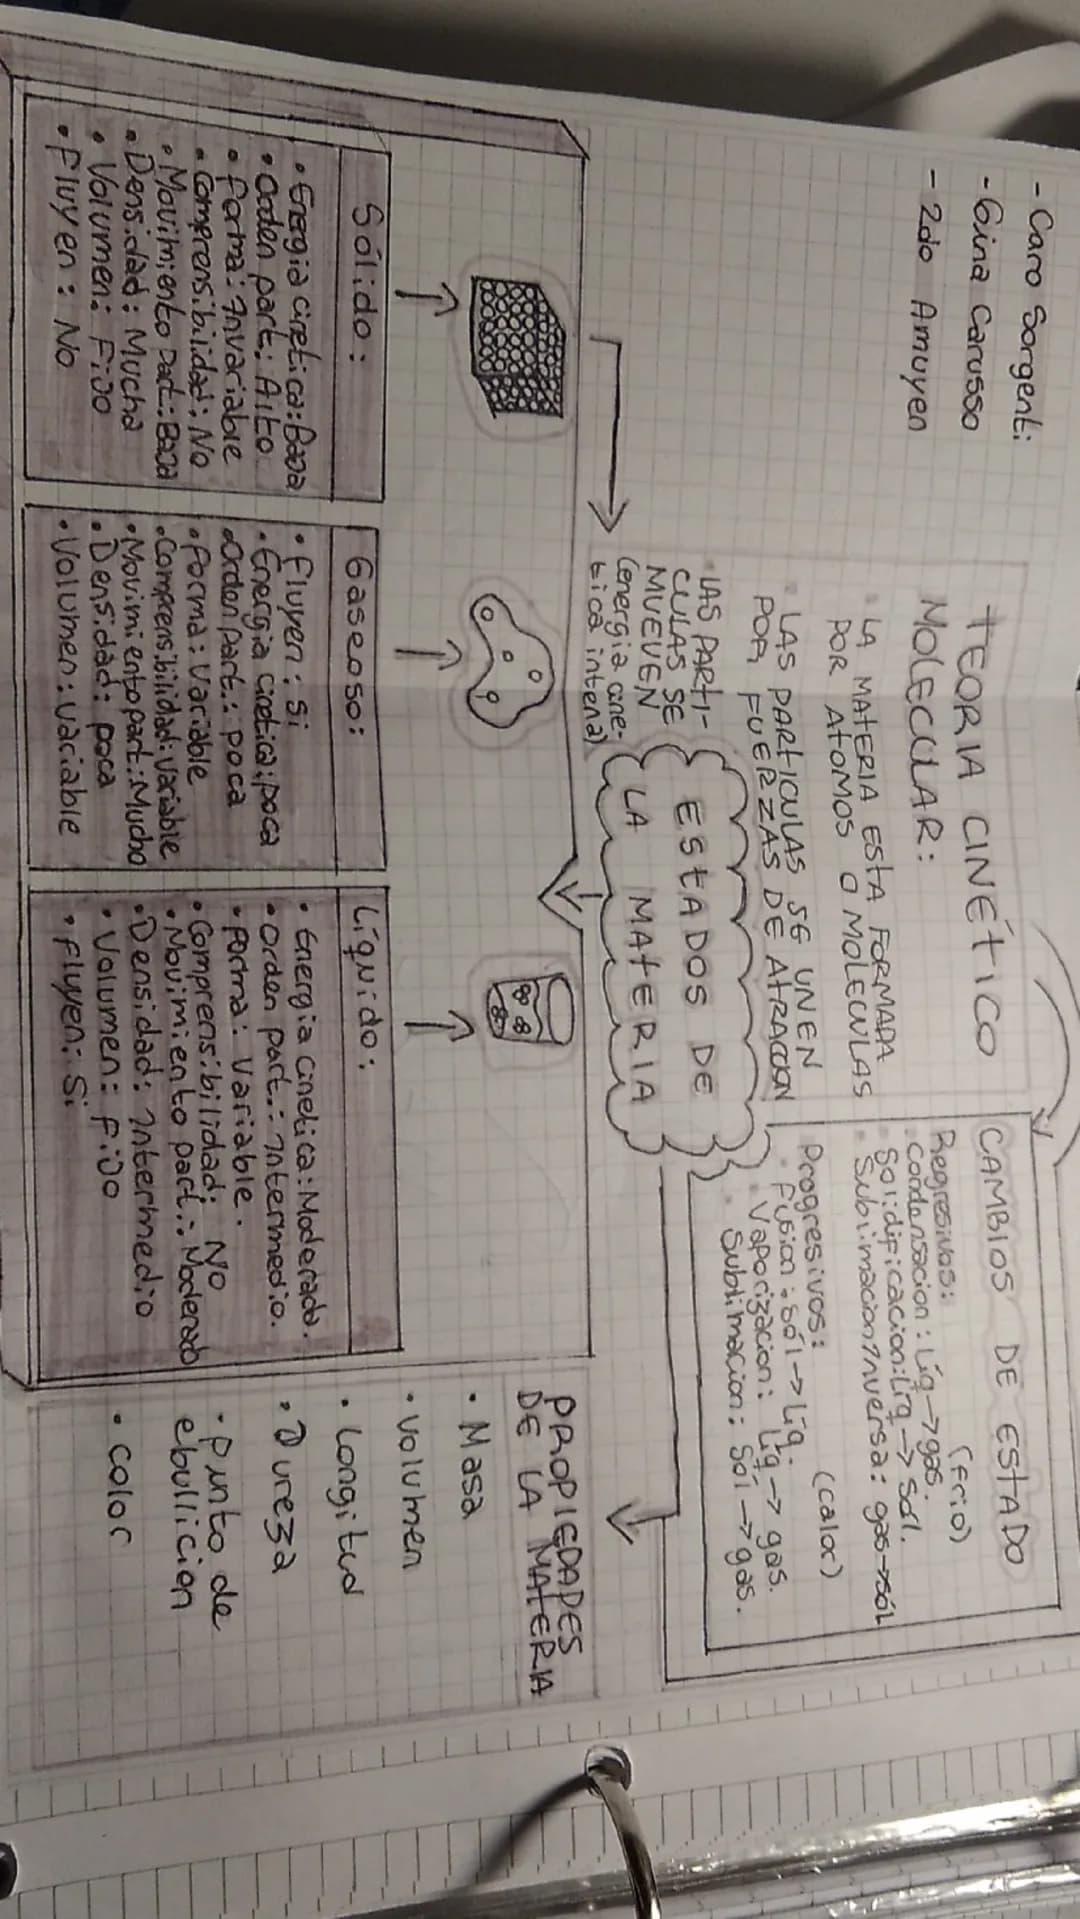 - Caro Sorgenti
- Gina Carusso
- 2do Amuyen
TEORIA CINÉTICO
MOLECULAR:
• LA MATERIA ESTA FORMADA
POR ATOMOS O MOLECULAS
• LAS PARTICULAS SE UNEN
POR FUERZAS DE ATRACCION
• LAS PARTI-
CULAS SE
MUEVEN
(energia cine-
tica interna)
CAMBIOS DE ESTADO
Regresivos: (Frio)
• Condensacion: Líq → gas.
• Solidificacion: Liq → Sol.
• Sublimacion Inversa: gas → sól
Progresivos: (calor)
• Fusion: sól → Liq.
• Vaporizacion: Liq → gas.
• Sublimacion: Sol → gas.
ESTADOS DE
LA MATERIA
Sólido:
• Energia cinetica: Baja
• Orden part: Alto
• Forma: Invariable
• Comprensibilidad: No
• Movimiento part: Baja
• Densidad: Mucha
• Volumen: Fijo
• Fluyen: No
Gaseoso:
• Fluyen: si
• Energia cinetica: poca
• Orden part.: poca
• Forma: Variable
• Comprensibilidad: variable
• Movimiento part: Mucho
• Densidad: poca
• Volumen: variable
Líquido:
• Energia cinetica: Moderada.
• Orden part.: Intermedio.
• Forma: Variable.
• Comprensibilidad: No
• Movimiento part.: Moderado
• Densidad: Intermedio
• Volumen: Fijo
• Fluyen: Si
PROPIEDADES
DE LA MATERIA
• Masa
• Volumen
• Longitud
• Dureza
• Punto de
ebullicion
• Color